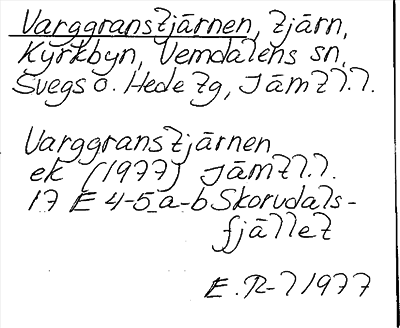 Varggranstjärnen, tjärn,
Kyrkbyn, Vemdalens sn,
Svegs o. Hede tg, Jämtl.l.
Varggranstjärnen
ek (1977) Jämtl.l.
17 E 4-5 a-b Skorvdals-
fjället
E. R-l 1977